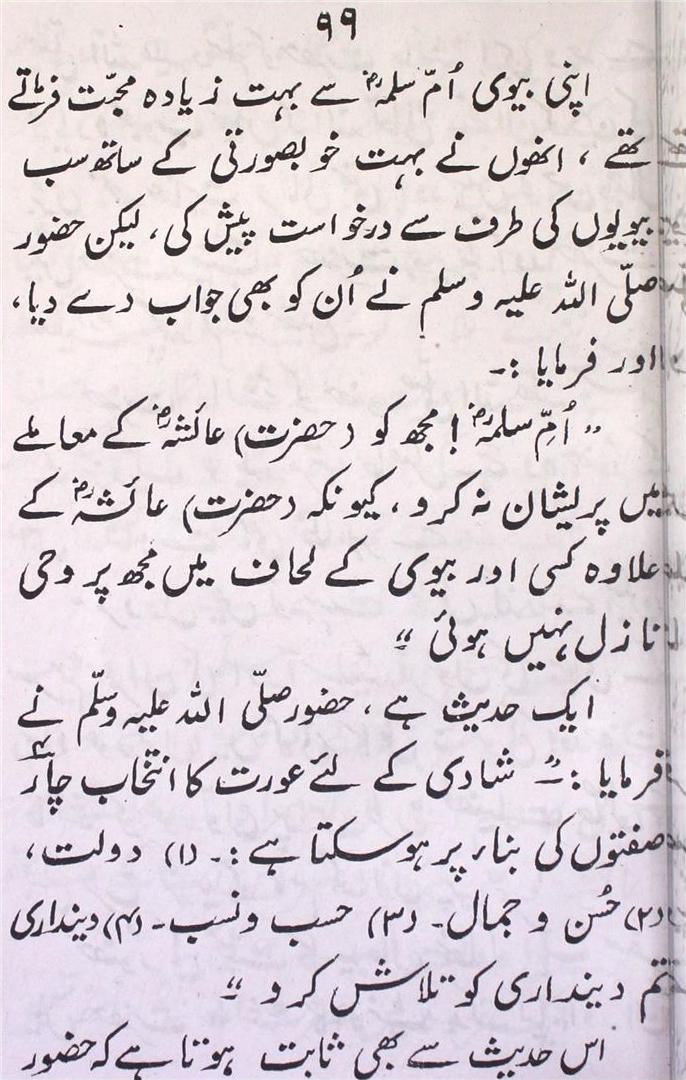 ۹۹
اپنی بیوی اُمّ سلمہؓ سے بہت زیادہ محبّت فرماتے
تھے ، انھوں نے بہت خوبصورتی کے ساتھ سب
بیویوں کی طرف سے درخواست پیش کی، لیکن حضور
صلّی اللہ علیہ وسلم نے اُن کو بھی جواب دے دیا،
اور فرمایا :۔
” اُمِّ سلمہؓ ! مجھ کو (حضرت) عائشہؓ کے معاملے
میں پریشان نہ کرو ، کیونکہ (حضرت) عائشہؓ کے
علاوہ کسی اور بیوی کے لحاف میں مجھ پر وحی
نازل نہیں ہوئی “
ایک حدیث ہے ، حضور صلّی اللہ علیہ وسلّم نے
فرمایا :۔ ” شادی کے لئے عورت کا انتخاب چار۴
صفتوں کی بناء پر ہوسکتا ہے :۔ (۱) دولت ،
(۲) حُسن و جمال۔ (۳) حسب و نسب۔ (۴) دینداری
تم دینداری کو تلاش کرو “
اس حدیث سے بھی ثابت ہوتا ہے کہ حضور